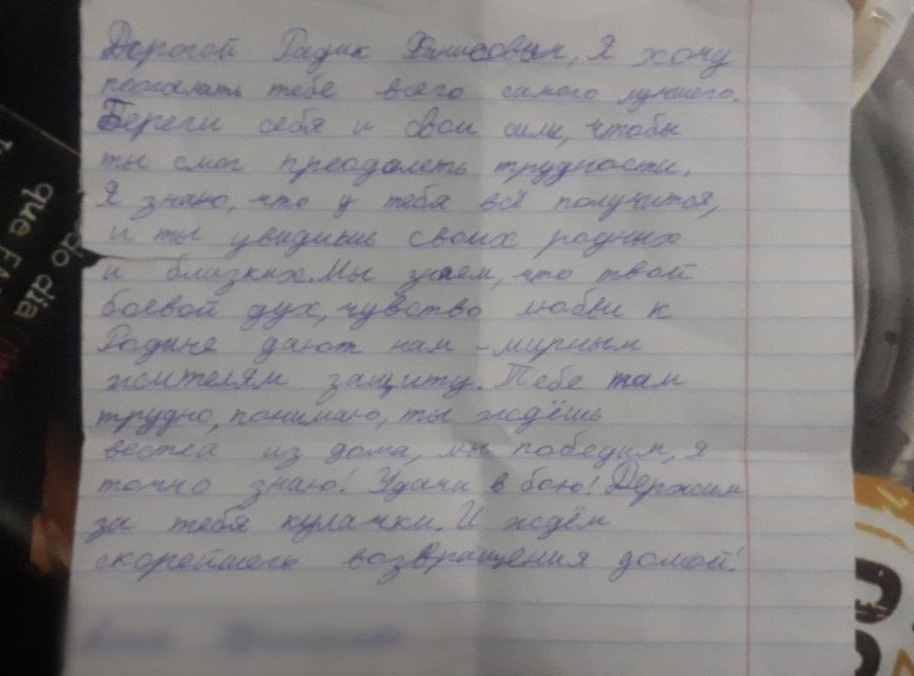 Дорогой Радик Хамисович, Я хочу
пожелать тебе всего самого лучшего.
Береги себя и свои силы, чтобы
ты смог преодолеть трудности.
Я знаю, что у тебя всё получится,
и ты увидишь своих родных
и близких. Мы знаем, что твой
боевой дух, чувство любви к
Родине дают нам - мирным
жителям защиту. Тебе там
трудно, понимаю, ты ждёшь
вестей из дома, мы победим, я
точно знаю! Удачи в бою! Держим
за тебя кулачки. И ждём
скорейшего возвращения домой!
ao dia
que